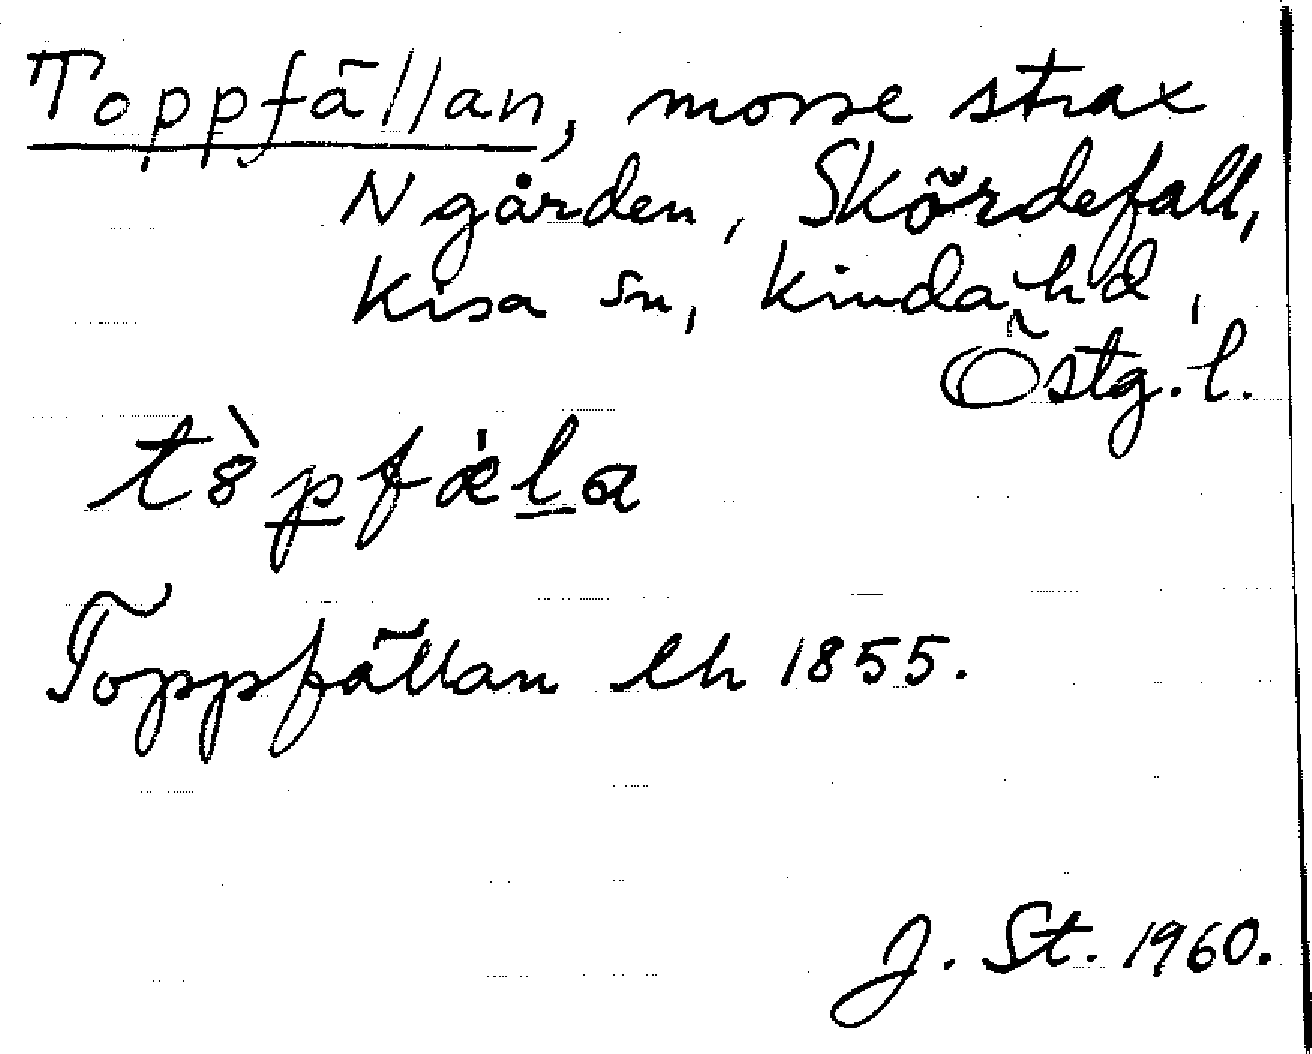 Toppfällan, mosse strax
N gården, Skördefall,
Kisa sn, Kinda hd,
Östg. l.
Toppfällan lh 1855.
J. St. 1960.